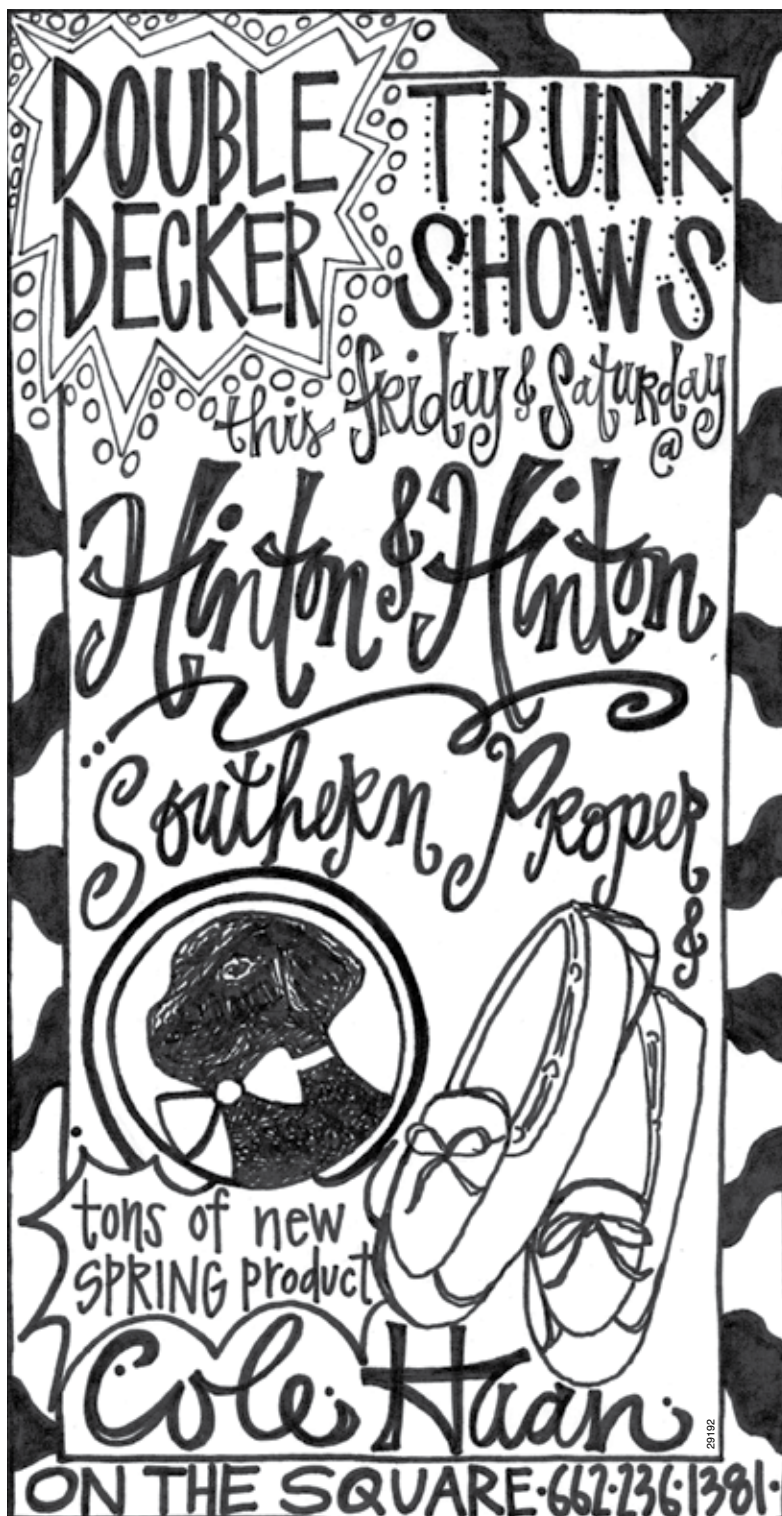 DOUBLE
DECKER
TRUNK
SHOWS
this Friday & Saturday
@
Hinton & Hinton
Southern Proper
&
tons of new
SPRING product
Cole Haan
29192
ON THE SQUARE·662·236·1381·